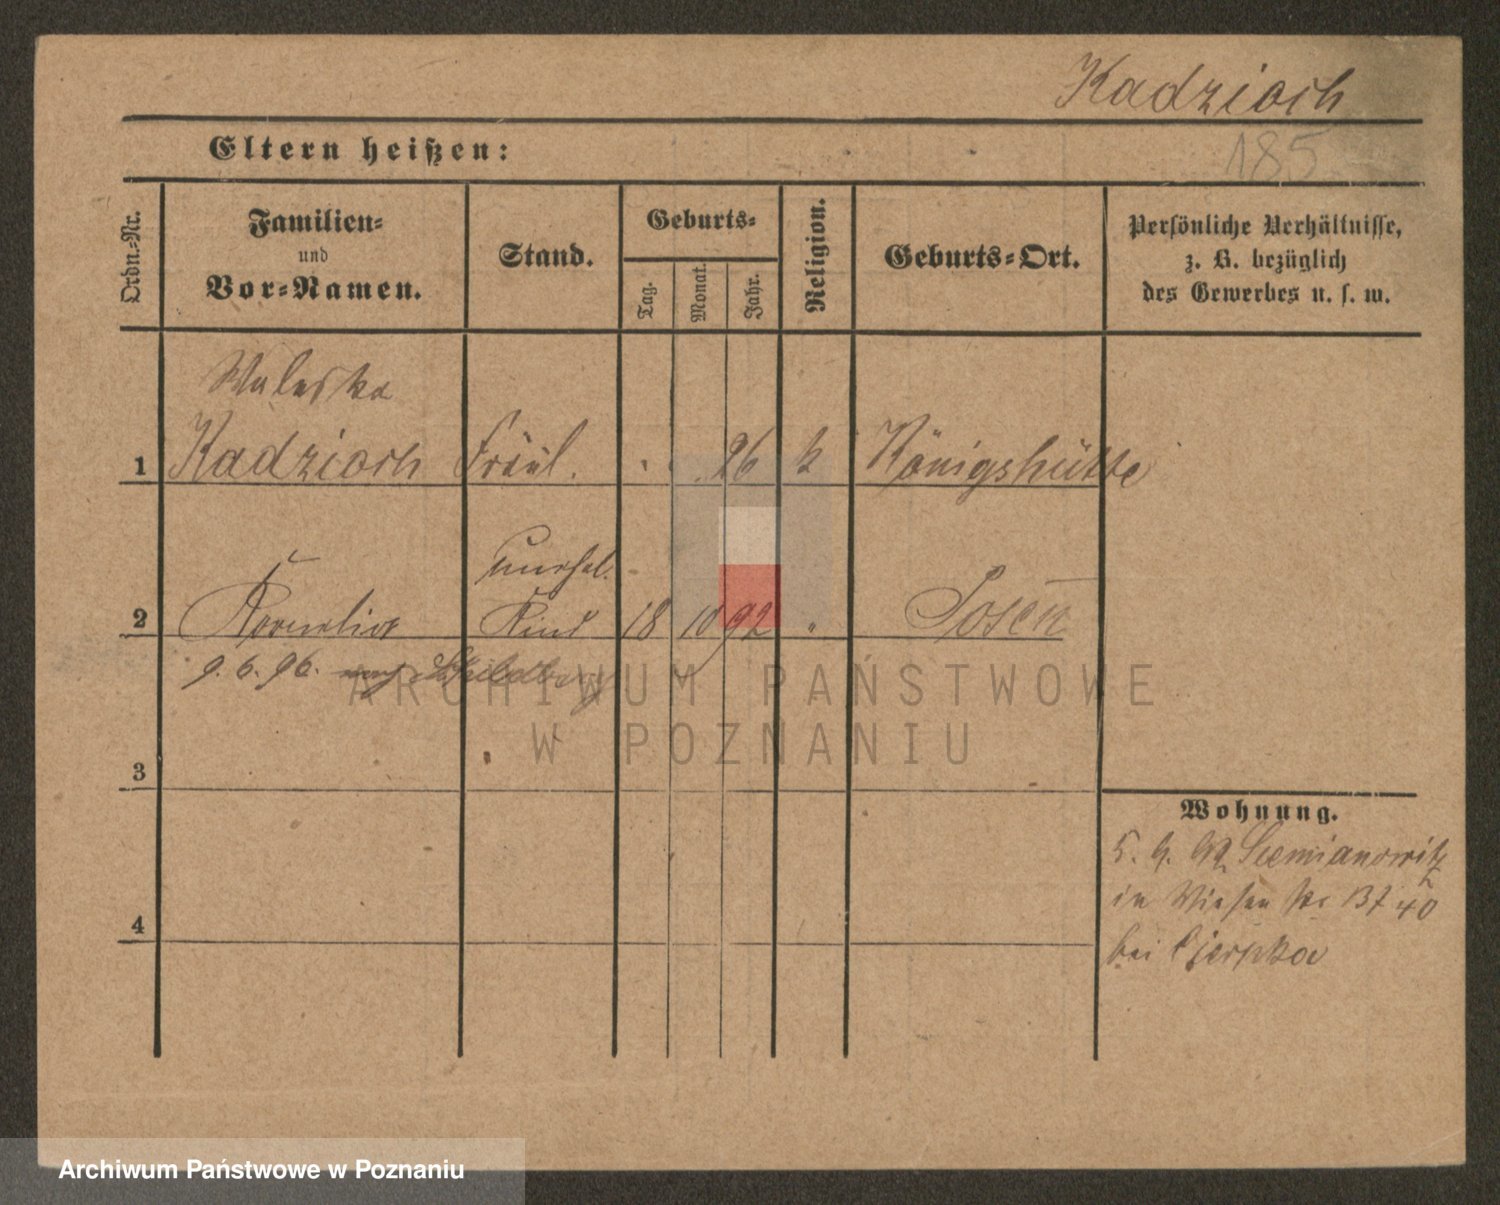 Kadzioch
185
Eltern heißen:
Ordn.-Nr.
Familien-
und
Vor-Namen.
Stand.
Geburts-
Tag.
Monat.
Jahr.
Religion.
Geburts-Ort.
Persönliche Verhältnisse,
z. B. bezüglich
des Gewerbes u. s. w.
Waleska
1 Kadzioch Fräul. 26 k Königshütte
unehel.
2 Kornelia Kind 18 10 92 " Posen
9. 6. 96. nach Schildberg
3
Wohnung.
5. 9. 92 Siemianowitz
in Wiesenstr 13/40
4
bei
ARCHIWUM PAŃSTWOWE
W POZNANIU
Archiwum Państwowe w Poznaniu